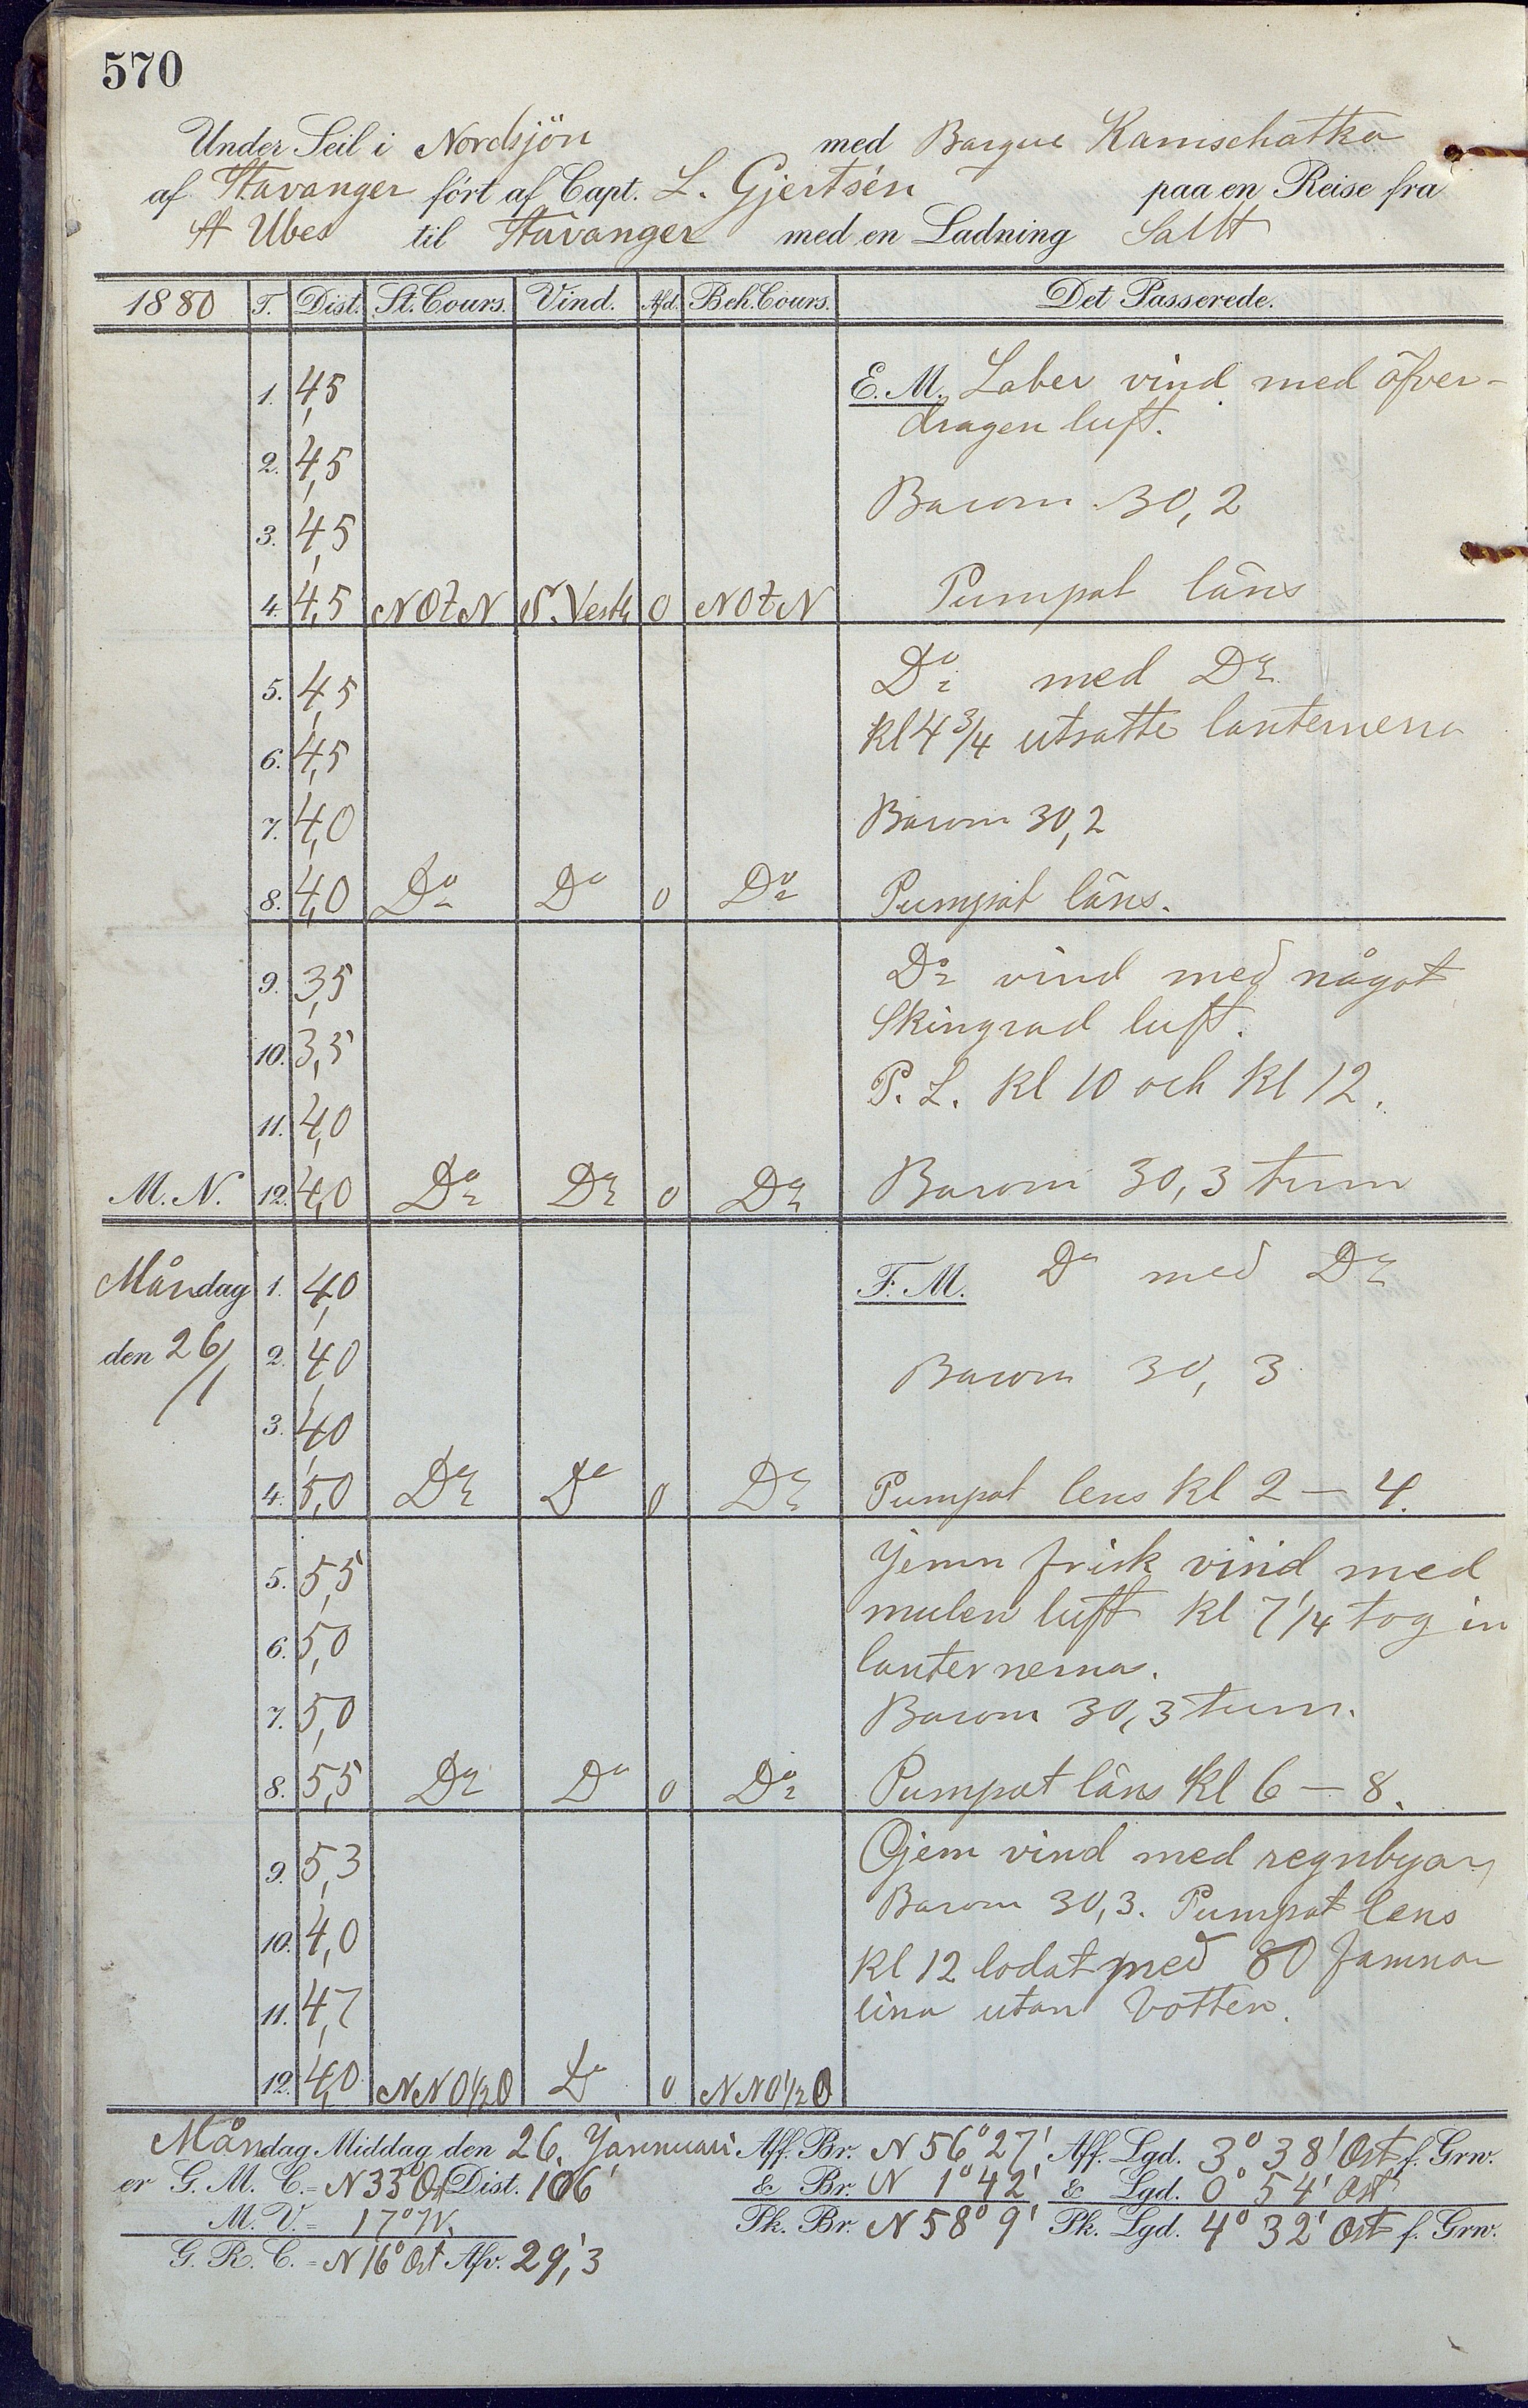 570
Under Seil i Nordsjön med Barque Kamschatka
af Stavanger fört af Capt. L. Gjertsén paa en Reise fra
St Ubes til Stavanger med en Ladning Sallt
1880 T. Dist. St. Cours. Vind. Afd. Beh. Cours. Det Passerede.
1. 4,5 E. M. Laber vind med öfver-
dragen luft.
2. 4,5
Barom 30,2
3. 4,5
4. 4,5 NOtN S. Vestl 0 NOtN Pumpat läns
5. 4,5 Do med Do
6. 4,5 kl 4 3/4 utsatte lanternerna
7. 4,0 Barom 30,2
8. 4,0 Do Do 0 Do Pumpat läns.
9. 3,5 Do vind med något
skingrad luft.
10. 3,5
P. L. kl 10 och kl 12.
11. 4,0
M. N. 12. 4,0 Do Do 0 Do Barom 30,3 tum
Måndag 1. 4,0 F. M. Do med Do
den 26/1 2. 4,0 Barom 30,3
3. 4,0
4. 5,0 Do Do 0 Do Pumpat lens kl 2 — 4.
5. 5,5 Jemn frisk vind med
mulen luft kl 7 1/4 tog in
6. 5,0
lanternerna.
7. 5,0 Barom 30,3 tum.
8. 5,5 Do Do 0 Do Pumpat läns kl 6 — 8.
9. 5,3 Ojem vind med regnbyar
Barom 30,3. Pumpat lens
10. 4,0
kl 12 lodat med 80 famnar
11. 4,7 lina utan botten.
12. 4,0 NNO1/2O Do 0 NNO1/2O
Måndag Middag den 26. Jannuari Aff. Br. N 56° 27' Aff. Lgd. 3° 38' Ost f. Grw.
er G. M. C. = N 33° Ost Dist. 106' & Br. N 1° 42' & Lgd. 0° 54' Ost
M. V. = 17° W. Pk. Br. N 58° 9' Pk. Lgd. 4° 32' Ost f. Grw.
G. R. C. = N 16° Ost Afv. 29,'3